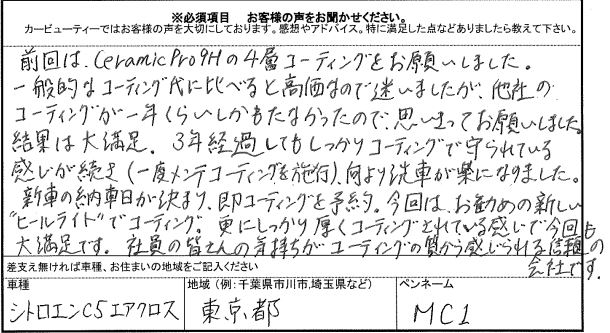 ※必須項目　お客様の声をお聞かせください。
カービューティーではお客様の声を大切にしております。感想やアドバイス。特に満足した点などありましたら教えて下さい。
前回は、CeramicPro9Hの4層コーティングをお願いしました。
一般的なコーティング代に比べると高価なので迷いましたが、他社の
コーティングが一年くらいしかもたなかったので、思いきってお願いしました。
結果は大満足。3年経過してもしっかりコーティングで守られている
感じが続き(一度メンテコーティングを施行)、何より洗車が楽になりました。
新車の納車日が決まり、即コーティングを予約。今回は、お勧めの新しい
"ヒールライド"でコーティング。更にしっかり厚くコーティングされている感じで今回も
大満足です。社員の皆さんの気持ちがコーティングの質から感じられる信頼の
会社です。
差支え無ければ車種、お住まいの地域をご記入ください
車種　地域（例：千葉県市川市,埼玉県など）　ペンネーム
シトロエンC5エアクロス　東京都　MC1